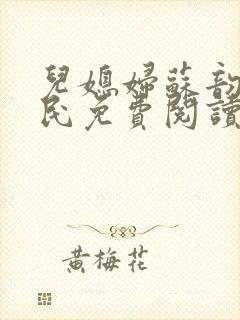 兒媳婦蘇韵
民免費閱讀
黃梅花